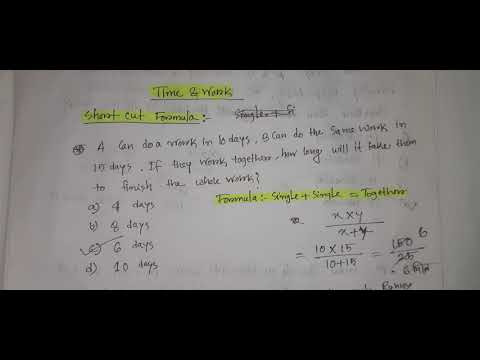 Time & Work
Short cut Formula:- Single + Si
A Can do a work in 10 days, B Can do the Same work in
15 days. If they work together, how long will it take them
to finish the whole work?
Formula:- Single + Single = Together
a) 4 days
b) 8 days
c) 6 days
d) 10 days
x × y
x + y
= 10 × 15 = 150 6
10 + 15 25